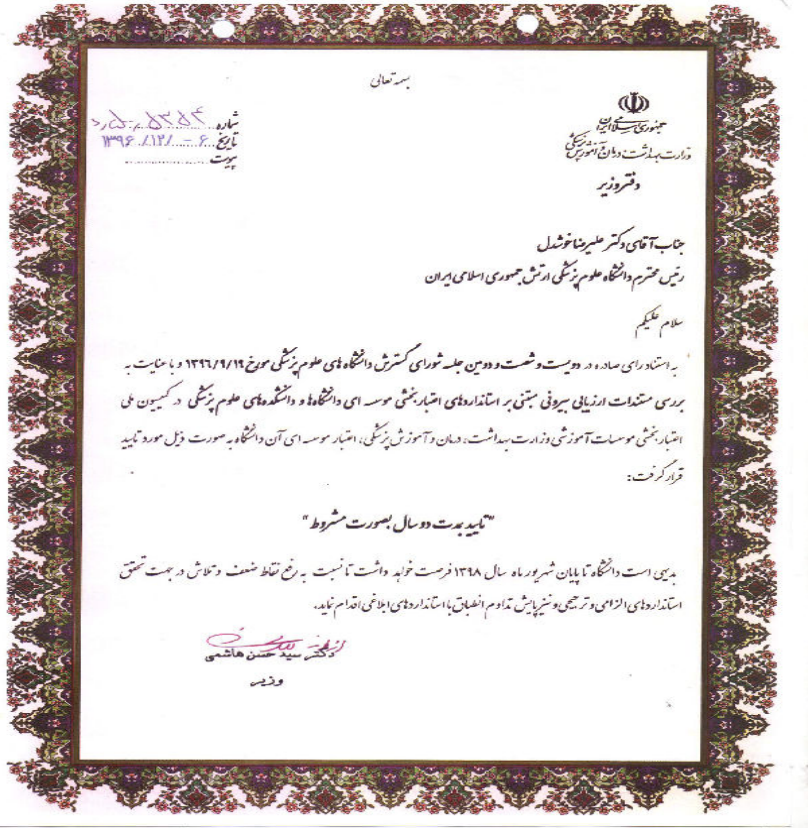 بسمه تعالی
جمهوری اسلامی ایران
وزارت بهداشت، درمان و آموزش پزشکی
دفتر وزیر
شماره
تاریخ ۱۳۹۶/۱۲/۰۶
پیوست
جناب آقای دکتر علیرضا خوشدل
رئیس محترم دانشگاه علوم پزشکی ارتش جمهوری اسلامی ایران
سلام علیکم
به استناد رای صادره در دویست و شصت و دومین جلسه شورای گسترش دانشگاه های علوم پزشکی مورخ ۱۳۹۶/۹/۱۹ و با عنایت به
بررسی مستندات ارزیابی بیرونی مبتنی بر استانداردهای اعتباربخشی موسسه ای دانشگاهها و دانشکده های علوم پزشکی در کمیسیون ملی
اعتباربخشی موسسات آموزشی وزارت بهداشت، درمان و آموزش پزشکی، اعتبار موسسه ای آن دانشگاه به صورت ذیل مورد تایید
قرار گرفت:
"تایید بمدت دو سال بصورت مشروط"
بدیهی است دانشگاه تا پایان شهریور ماه سال ۱۳۹۸ فرصت خواهد داشت تا نسبت به رفع نقاط ضعف و تلاش در جهت تحقق
استانداردهای الزامی و ترجیحی و نیز پایش تداوم انطباق با استانداردهای ابلاغی اقدام نماید.
دکتر سید حسن هاشمی
وزیر